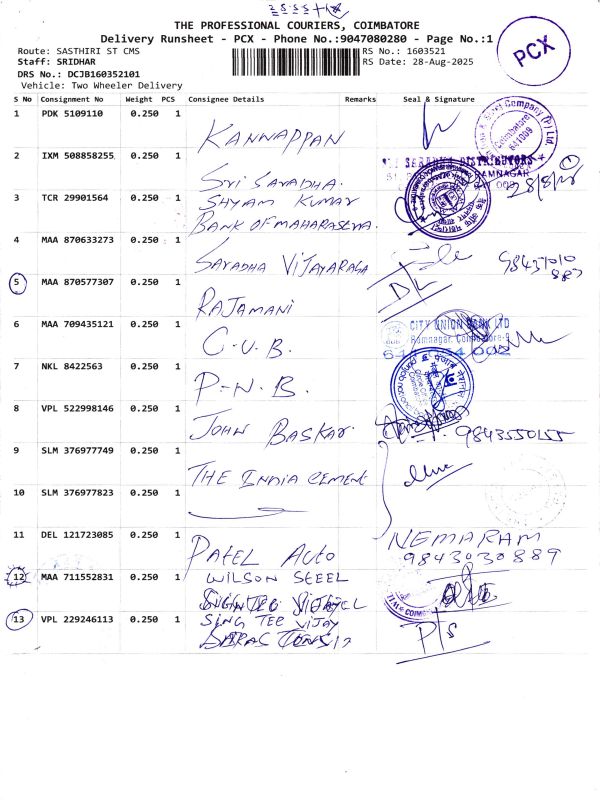 THE PROFESSIONAL COURIERS, COIMBATORE
Delivery Runsheet - PCX - Phone No.:9047080280 - Page No.:1
PCX
Route: SASTHIRI ST CMS RS No.: 1603521
Staff: SRIDHAR RS Date: 28-Aug-2025
DRS No.: DCJB160352101
Vehicle: Two Wheeler Delivery
S No Consignment No Weight PCS Consignee Details Remarks Seal & Signature
1 PDK 5109110 0.250 1 KANNAPPAN
Coimbatore 641009
2 IXM 508858255 0.250 1 Sri Saradha. SARADHA DISTRIBUTORS
28/8/25
3 TCR 29901564 0.250 1 SHYAM KUMAR
BANK OF MAHARASTRA.
4 MAA 870633273 0.250 1 SARADHA VIJAYARAGA
5 MAA 870577307 0.250 1 RAJAMANI
6 MAA 709435121 0.250 1 C.U.B. CITY UNION BANK LTD
Ramnagar, Coimbatore-9
7 NKL 8422563 0.250 1 P-N.B.
8 VPL 522998146 0.250 1 JOHN BASKAR.
9 SLM 376977749 0.250 1 THE INDIA CEMENT
10 SLM 376977823 0.250 1
11 DEL 121723085 0.250 1 PATEL AUTO NEMARAM
9843030889
12 MAA 711552831 0.250 1 WILSON STEEL
13 VPL 229246113 0.250 1 SING TEE VIJAY